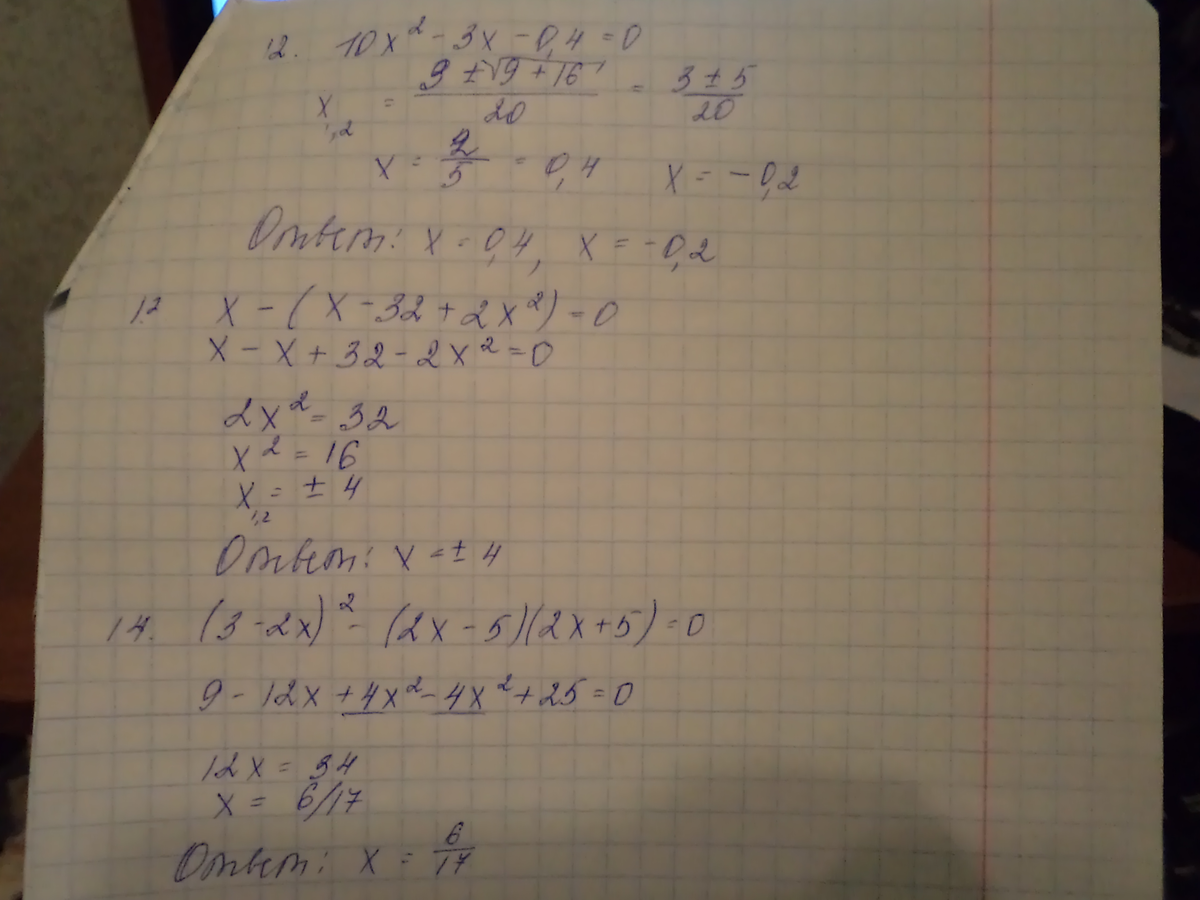 12. 10x² - 3x - 0,4 = 0
x₁,₂ = (9 ± √(9 + 16))/20 = (3 ± 5)/20
x = 2/5 = 0,4 x = -0,2
Ответ: x = 0,4, x = -0,2
12 x - (x - 32 + 2x²) = 0
x - x + 32 - 2x² = 0
2x² = 32
x² = 16
x₁,₂ = ± 4
Ответ: x = ± 4
14. (3 - 2x)² - (2x - 5)(2x + 5) = 0
9 - 12x + 4x² - 4x² + 25 = 0
12x = 34
x = 6/17
Ответ: x = 6/17